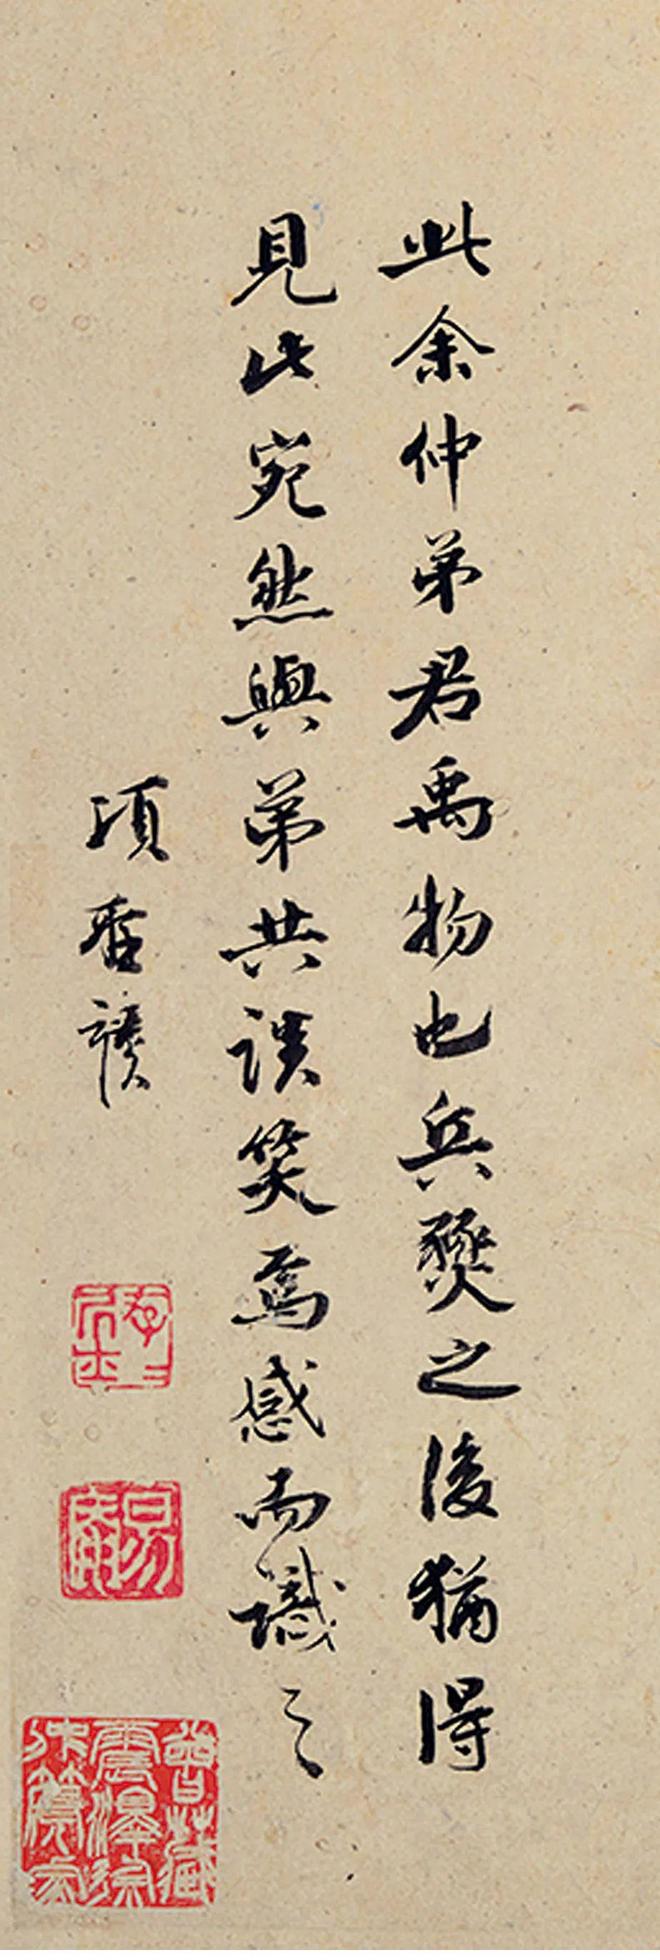 此余仲弟君禹物也兵燹之後猶得
見此宛然與弟共談笑焉感而識之
項
曾藏震澤徐